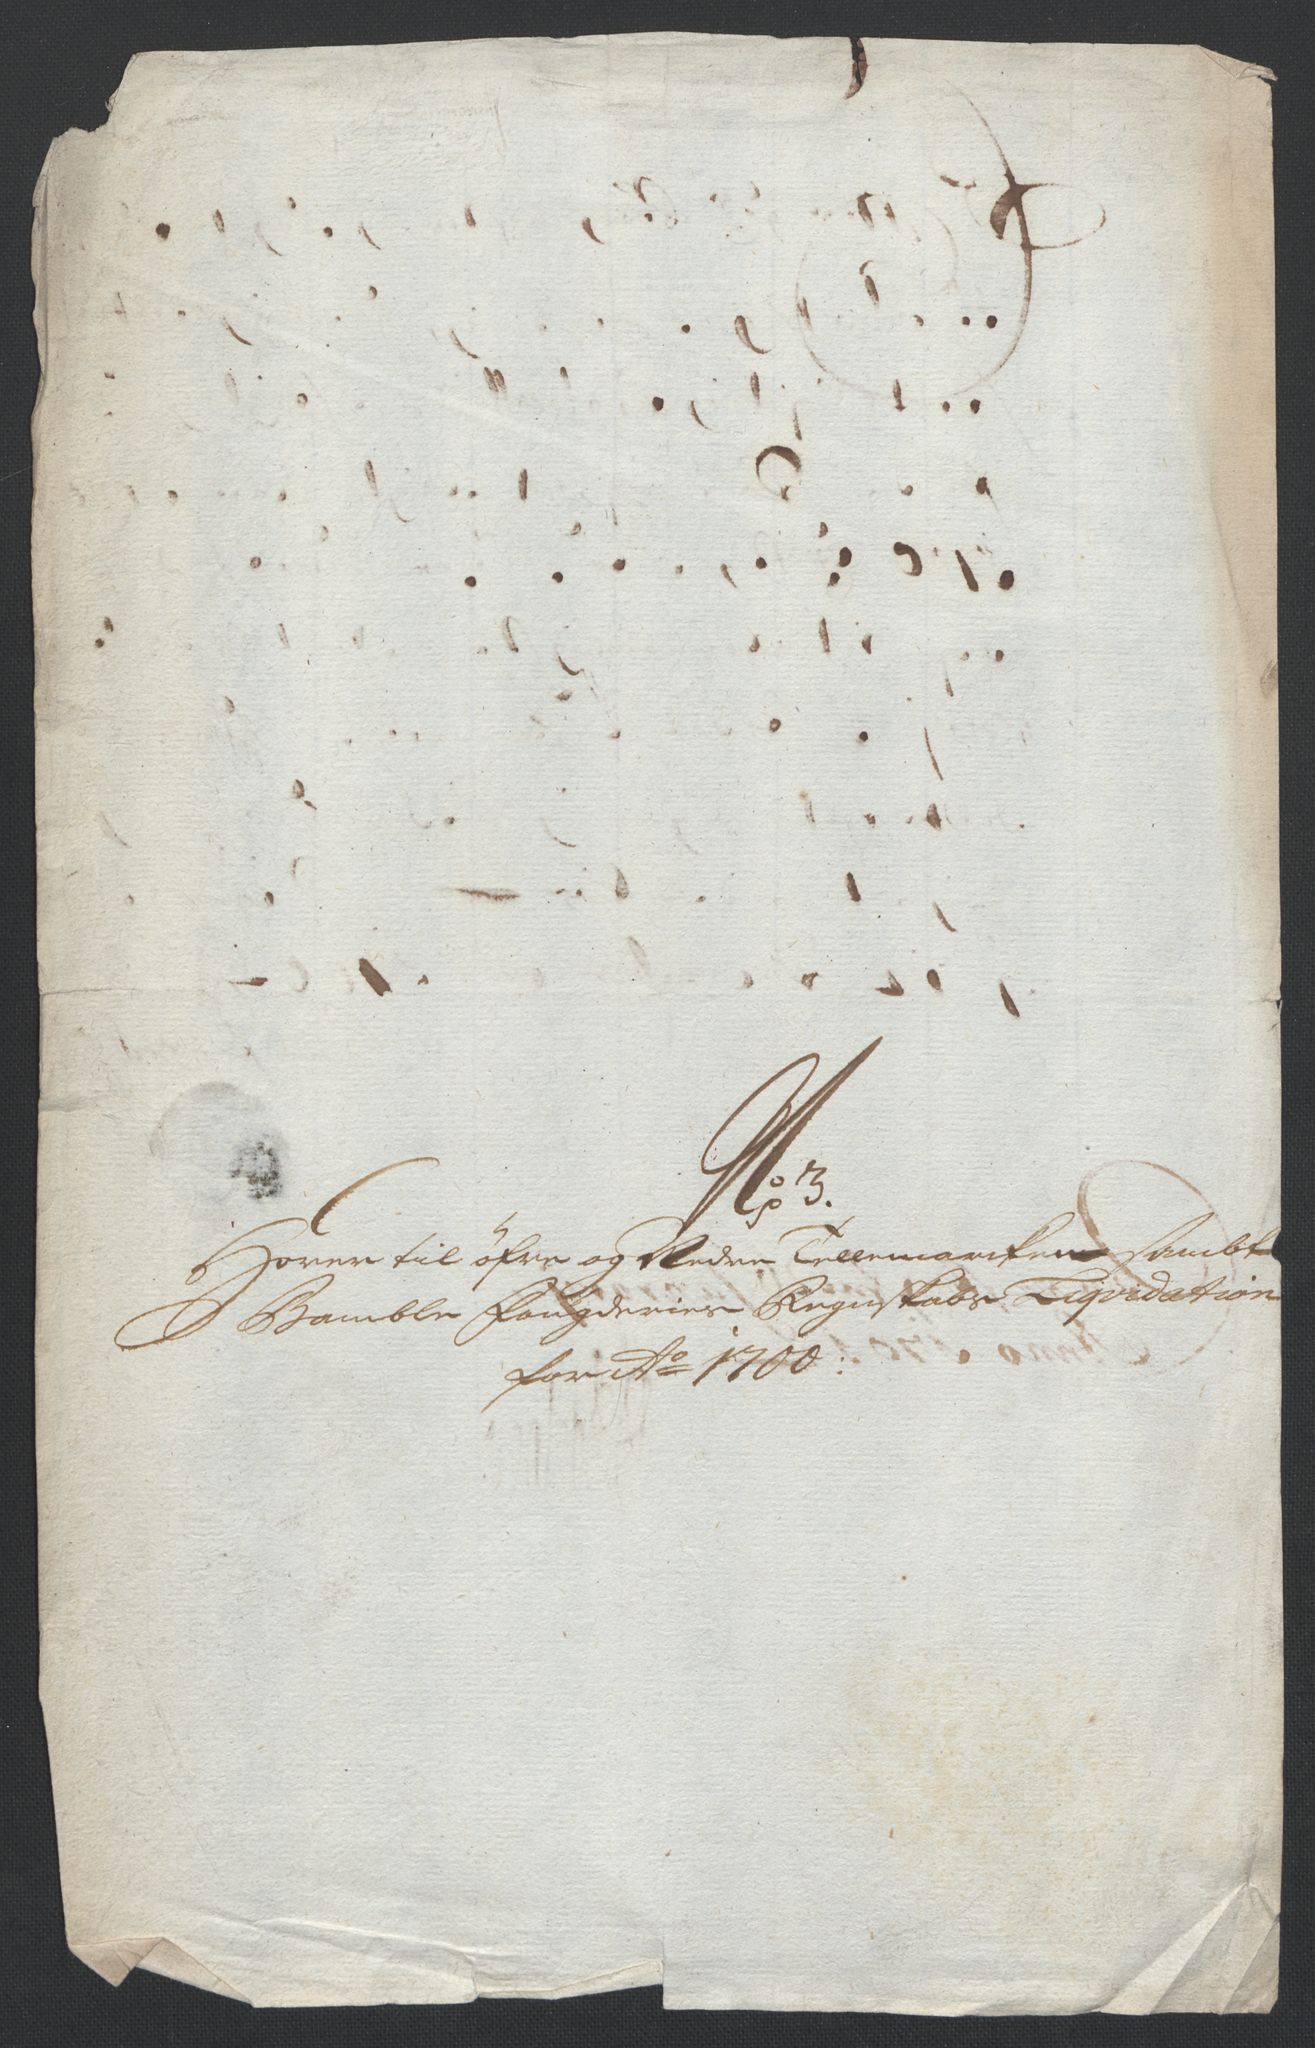 No: 3.
Hører til öfre og Nedre Tellemarcken sambt
Bamble Fougderies Regnskabs Liqvidation
for Ao 1700: